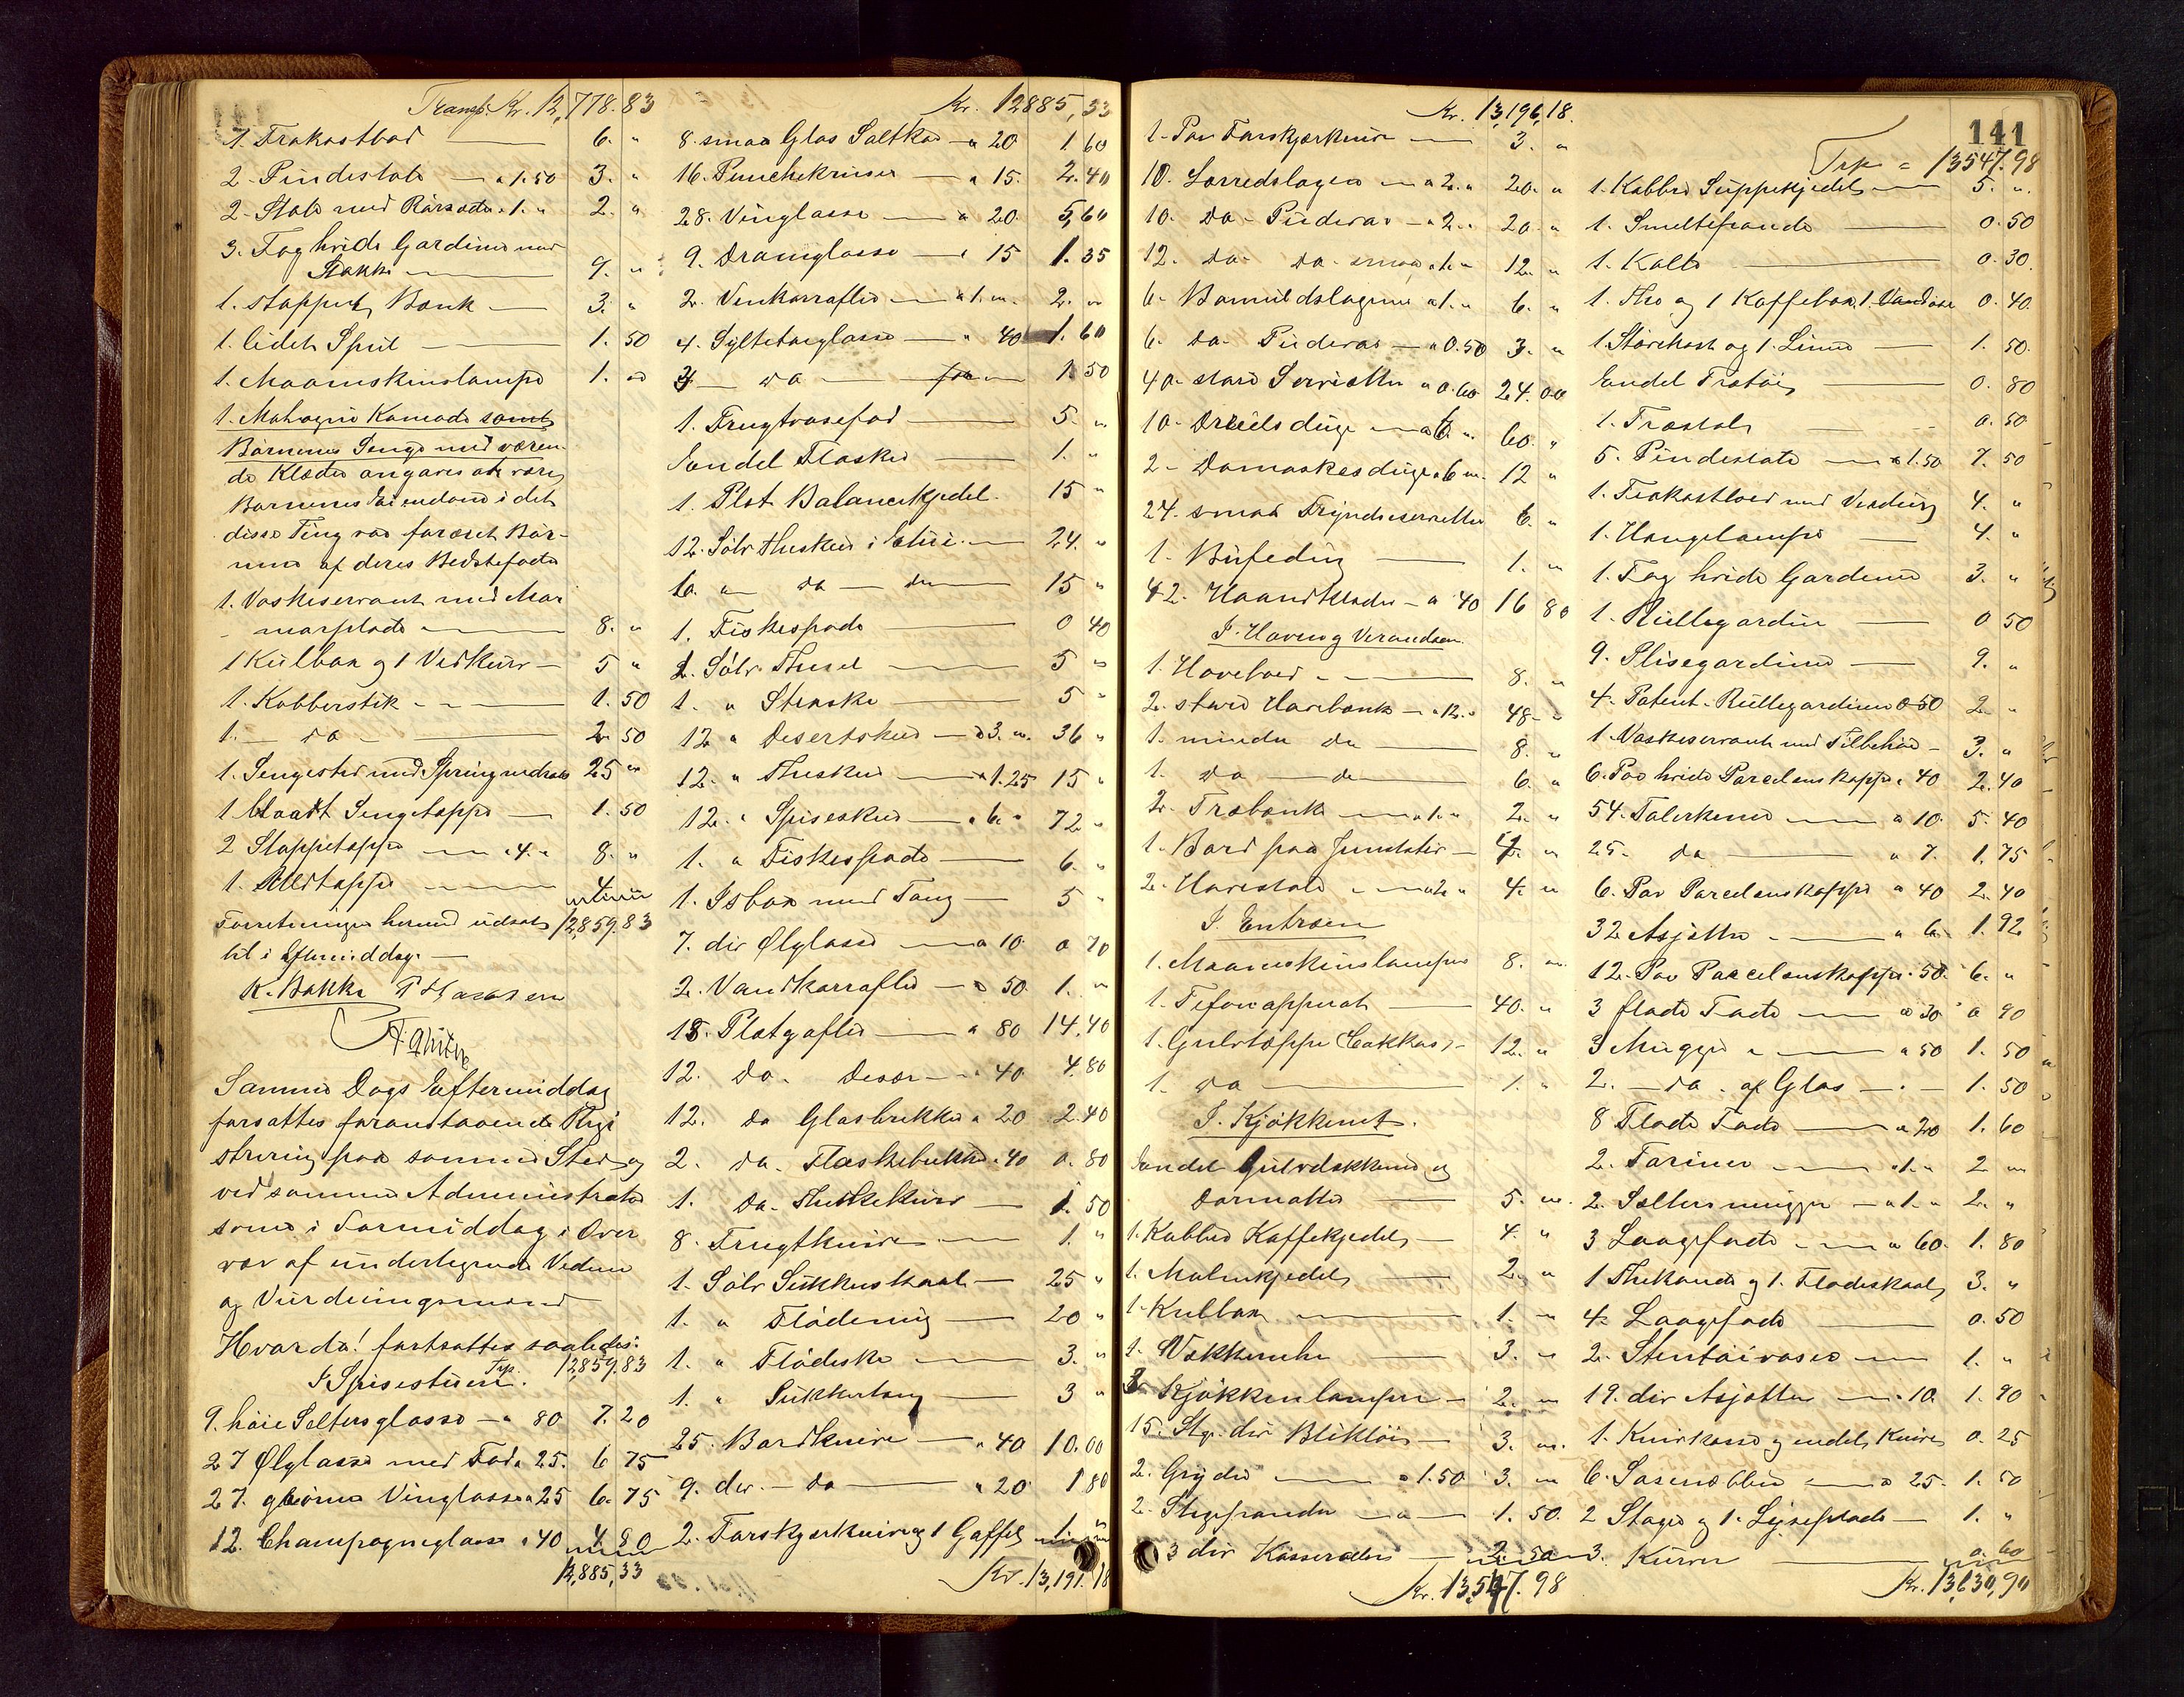 Transp. Kr. 12,778.83
1. Frokostbord — 6. "
2. Pindestole — a 1.50 3. "
2. Stole med Rørsæde a 1. " 2. "
3. Fag hvide Gardiner med
Stokke — 9. "
1. stoppet Bænk — 3. "
1. lidet Speil — 1. 50
1. Maaneskinslampe 1. "
1. Mahogni Komode samt
Børnenes Senge med væren-
de Klæder angaves at være
Børnenes Eiendom i det
disse Ting var foræret Bør-
nene af deres Bedstefader
1. Vaskeservant med Mar
morplade — 8. "
1 Kulbox og 1 Vedkurv — 5 "
1. Kobberstik — 1. 50
1. — do — 2. 50
1. Sengested med Springmadras 25 "
1 blaat Sengeteppe — 1. 50
2 Stoppetepper — a 4. " 8. "
1. Uldteppe — 4
Forretningen herved udsat 12,859.83
til i Eftermiddag. —
K. Bakke
Samme Dags Eftermiddag
forsattes foranstaaende Regi
strering paa samme Sted og
ved samme Administrator
som i Formiddag i Over
vær af undertegnede Vidner
og Vurderingsmænd
Hvorda! fortsattes saaledes:
I Spisestuen. Trp. 12,859.83
9. høie Seltersglasse — a 80 7. 20
27 Ølglasse med Fod a 25. 6 75
27. grønne Vinglasse a 25 6. 75
12. Champagneglasse a 40 4 80
12,885,33
Kr. 12885,33
8. smaa Glas Saltkar — a 20 1. 60
16. Puncheknuser — a 15. 2. 40
28. Vinglasse — a 20. 5,60
9. Dramglasse — a 15 1. 35
2. Vinkarafler — a 1. " 2. "
4. Syltetøiglasse — a 40 1. 60
3 — do — 1 50
1. Frugtvasefod — 5. "
Endel Flasker — 1. "
1. Plet Balancekjedel. 15 "
12. Sølv Theskeer i Etui — 24. "
10. " — do — do — 15 "
1. Fiskespade — 0 40
1. Sølv Thesil — 5 "
1. " Strøske — 5 "
12 " Desertskeer — a 3. " 36 "
12. " Theskeer — a 1.25 15 "
12. " Spiseskeer — a 6. " 72 "
1. " Fiskespade — 6. "
1. Isbox med Tang — 5 "
7. div Ølglasse — a 10. 0 70
2. Vandkarafler — a 50. 1. "
18. Pletgafler — a 80 14. 40
12. do. Deser — a 40 4. 80
12. do Glasbrikker a 20 2. 40
2. do. Flaskebrikker a 40 0. 80
1. do. Theskekurv — 1. 50
8. Frugtknive — 1. "
1. Sølv Sukkerskaal — 25 "
1. " Flødemug — 20 "
1. " Flødeske — 3. "
1. " Sukkertang — 3 "
25. Bordknive — a 40 10.00
9. div. — do — a 20 1 80
2. Forskjærknive og 1 Gaffel
Kr. 13,191.18
Kr. 13,196,18.
1. Par Forskjærknive — 3. "
10. Lærredslagen — a 2. " 20. "
10. do. Pudevar — a 2. " 20. "
12. do. do. smaa a 1. " 12. "
6. Bomuldslagener a 1. " 6. "
6. do. Pudevar — a 0.50 3. "
40. store Servietter a 0.60 24.00
10. Dreielsduge — a 6. " 60. "
2. Damaskesduge a 6. " 12 "
24. smaa Fryndseservietter 6. "
1. Bufedug — 1. "
42. Haandklæder — a 40 16 80
I. Haven og Verandaen.
1. Havebord — 8. "
2. større Havebænk — a 12. " 48. "
1. mindre do — 8. "
1. do — do — 6. "
2. Træbænke — a 1. " 2. "
1. Bord paa Jernstativ — 4. "
2. Havestole — a 2. " 4. "
I. Entreen
1. Maaneskinslampe 8. "
1. Tefonapparat — 40. "
1. Gulvteppe (Kokkas) — 12. "
1. do — 1. "
I. Kjøkkenet.
Endel Gulvdækkener og
Dørmatter — 5. "
1. Kobber Kaffekjedel — 4. "
1. Malmkjedel — 2. "
1. Kulbox — 1. "
1. Vækkeruhr — 3. "
3 Kjøkkenlamper — 2. "
15. Stkr. div Bliktøi — 3. "
2. Gryder — a 1.50 3. "
2. Stegepander — 1. 50.
3 div Kasseroller — 2. 50
Kr. 13,547.98
141
Trp = 13547.98
1. Kobber Suppekjedel — 5. ".
1. Smeltepande — 0. 50
1. Kolle — 0. 30.
1. The og 1 Kaffebox, 1 Vandøse 0. 40.
1. Størekost og 1. Limme — 1. 50.
Endel Trætøi — 0. 80
1. Træstol — 0. 50
5. Pindestole — a 1.50 7. 50
1. Frokostbord med Voxdug 4. "
1. Hængelampe — 4. "
1. Fag hvide Gardiner 3. "
1. Rullegardin — 0 50
9. Plisegardiner — 9. "
4. Patent. Rullegardiner 0.50 2. "
1. Vaskeservant med Tilbehør — 3. "
6. Par hvide Porcelenskopper a 40 2. 40
54. Talerkener — a 10. 5. 40
25. do — a 7. 1. 75
6. Par Porcelenskopper a 40 2. 40
32 Asjetter — a 6 1. 92
12. Par Porcelenskopper a 50 6. "
3 flade Fade — a 30 0 90
3 Mugger — a 50 1. 50
2. — do. af Glas — 1. 50
8 Flade Fade — a 20 1. 60
2. Tariner — a 1. " 2 "
2. Seltersmugger — a 1. " 2. "
3 Laagefade — a 60. 1. 80
1 Thekande og 1. Flødeskaal 3. "
4. Laagefade — 0. 50
2. Stentøivaser — 1. "
19. div Asjetter — a 10. 1. 90
1. Knivkasse og endel Knive 0. 25
6. — a 25. 1. 50
2 Stager og 1. Lyseplade — 1. "
3. Kurver — 0. 60
Kr. 13,630,90